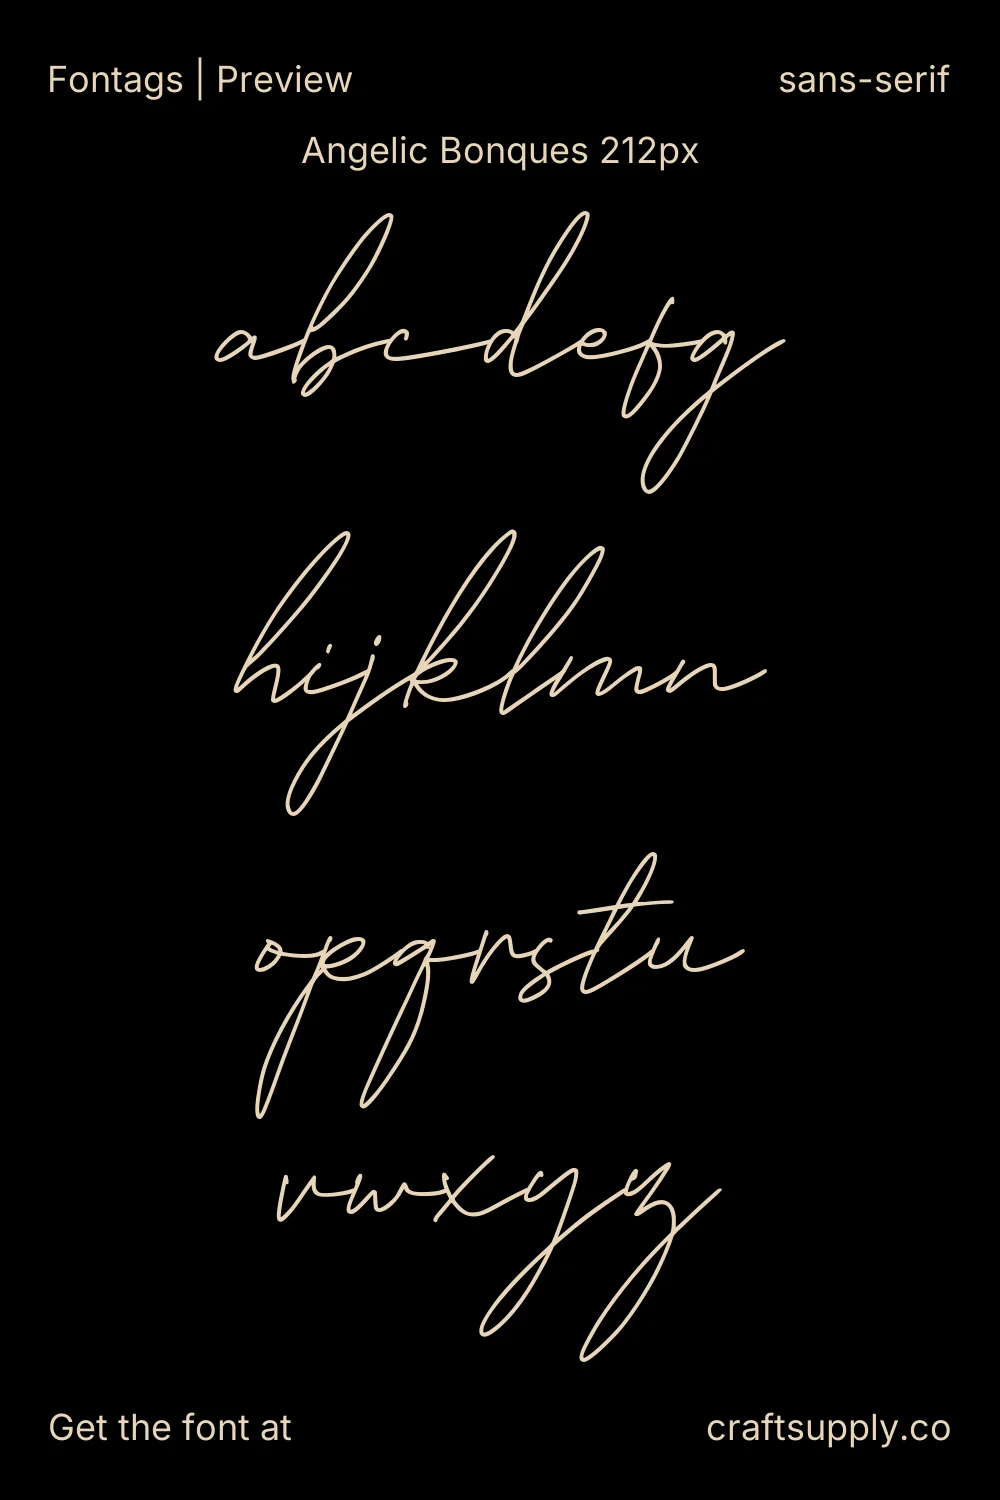 Fontags | Preview sans-serif
Angelic Bonques 212px
abcdefg
hijklmn
opqrstu
vwxyz
Get the font at craftsupply.co